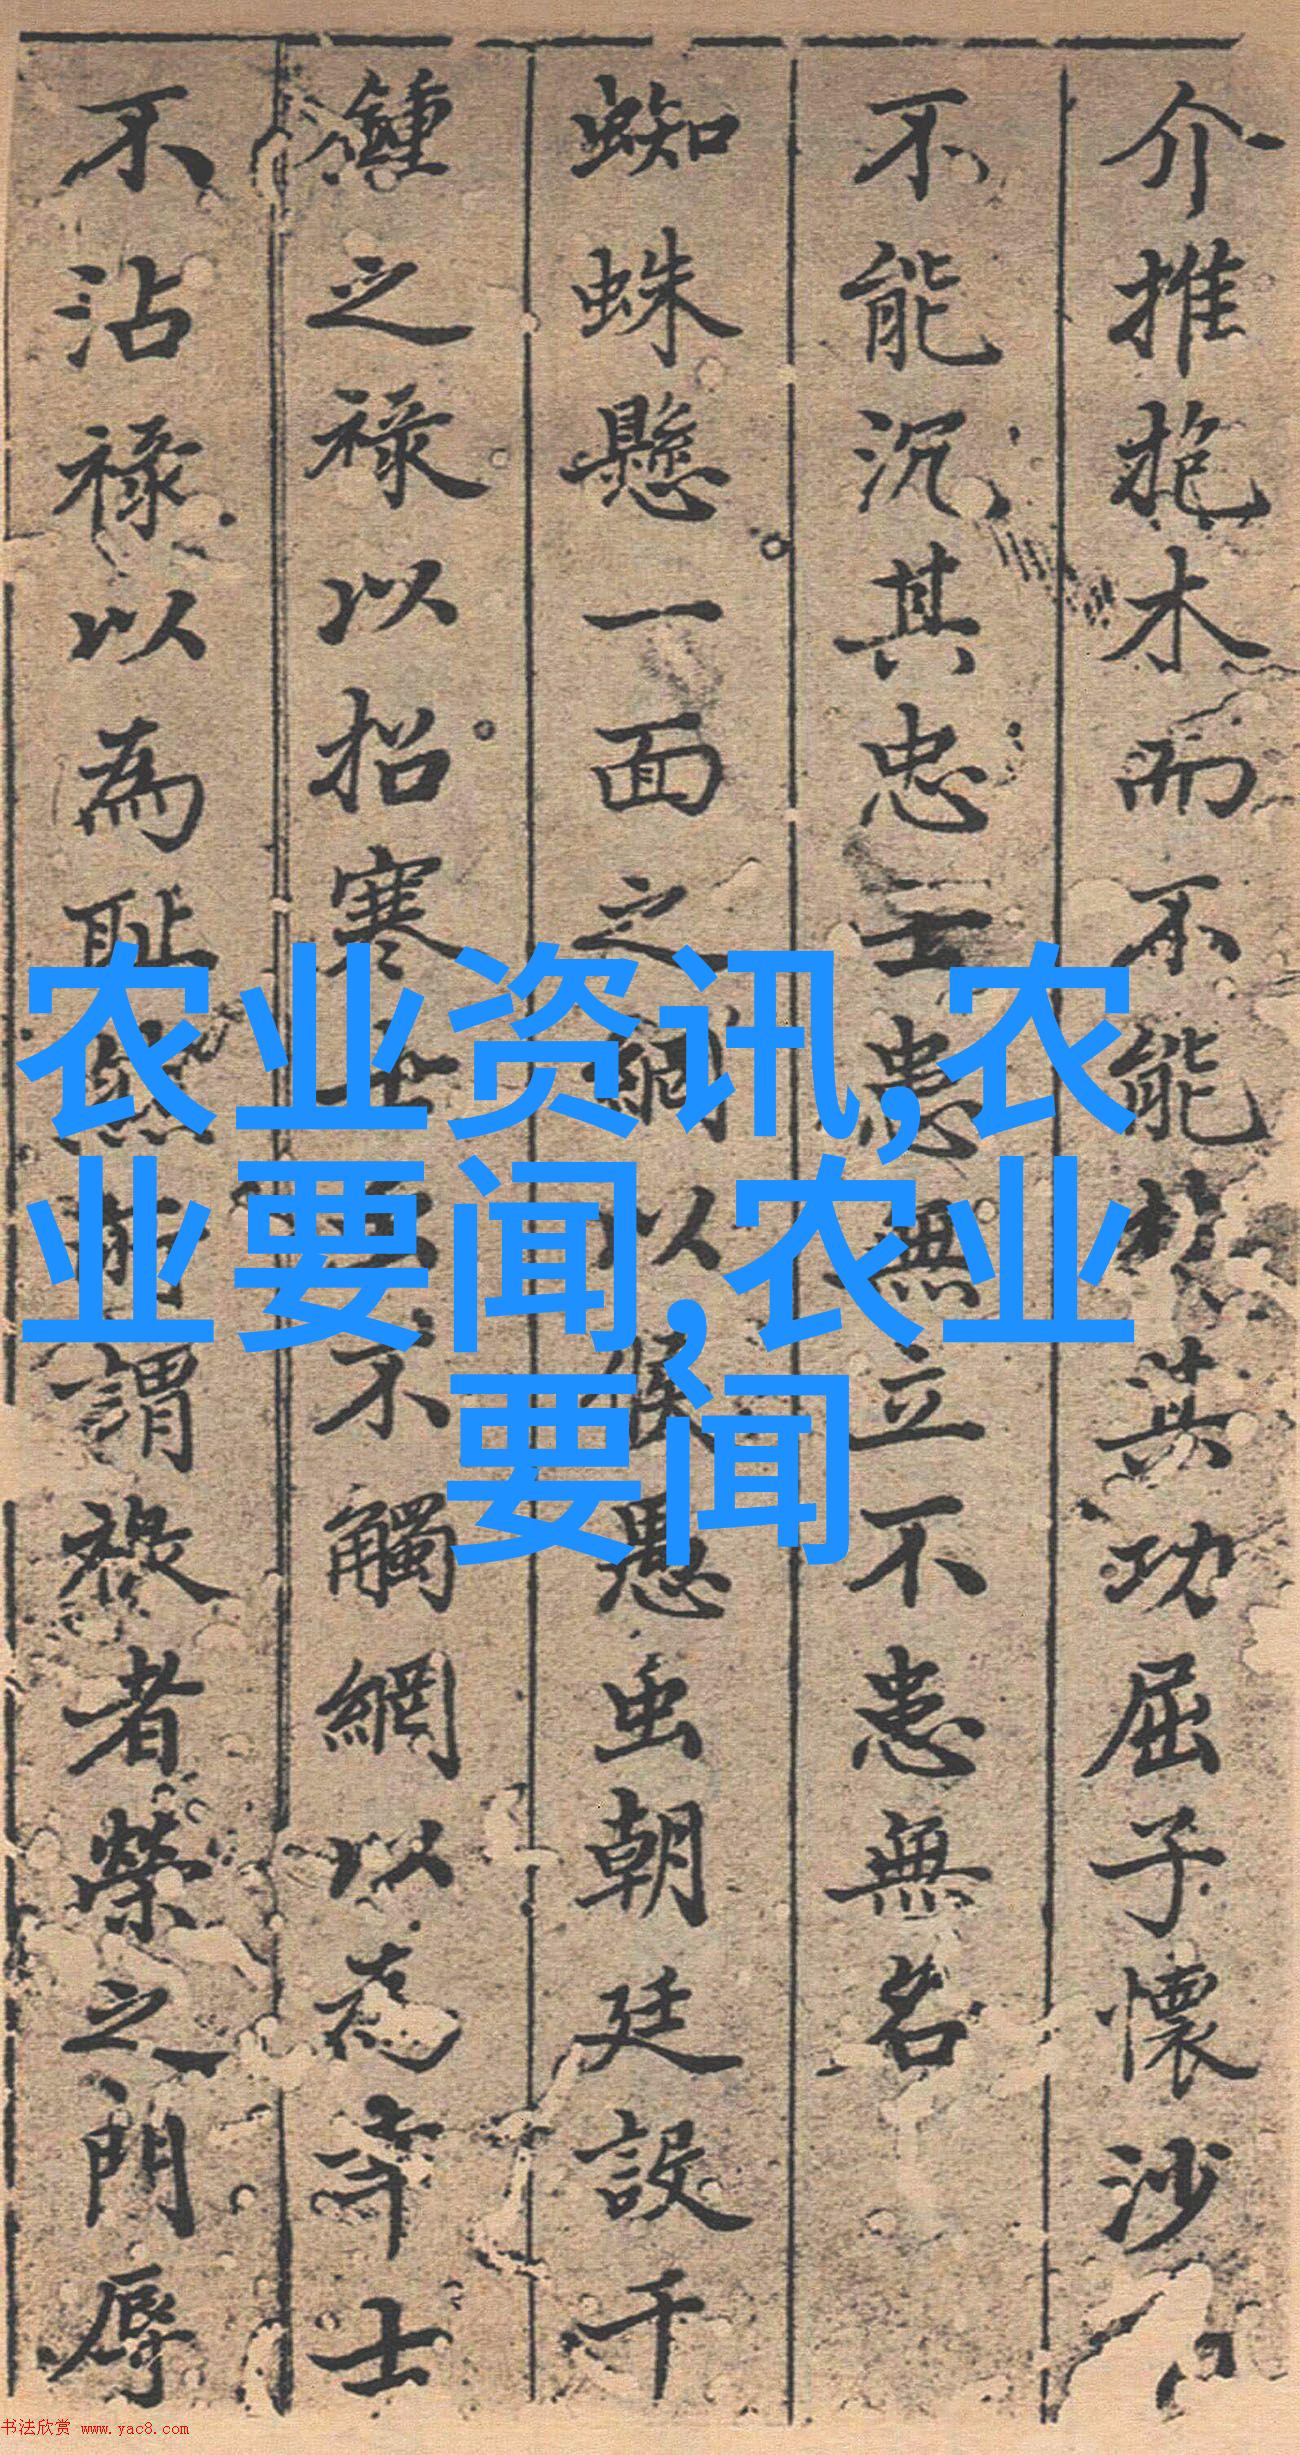 介推抱木而不能於其功屈子懷沙
不能沉其忠士患無立不患無名
蜘蛛懸一面之網以候愚虫朝廷設千
鍾之祿以招寒士不觸網以為
士
不沾祿以為恥 所謂 者榮之門辱
农业资讯,农
业要闻,农业
要闻
书法欣赏 www.yac8.com